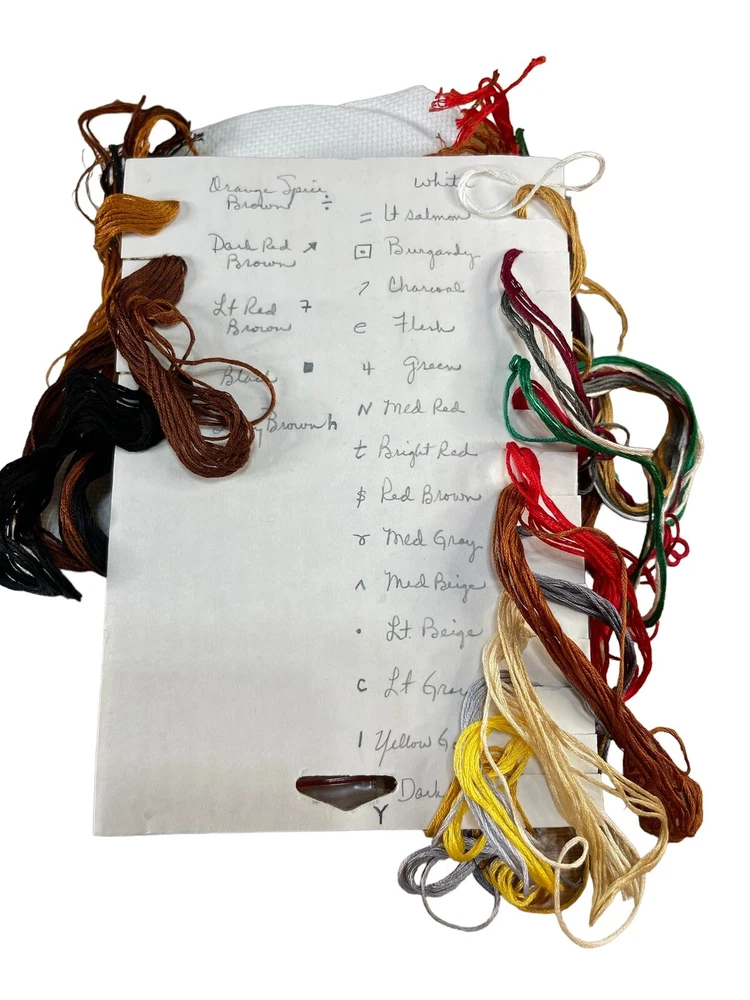 Orange Spice
Brown ÷
Dark Red ↗
Brown
Lt Red 7
Brown
Black ■
Brown h
White
= Lt salmon
⊡ Burgandy
7 Charcoal
e Flesh
4 Green
N Med Red
t Bright Red
$ Red Brown
r Med Gray
^ Med Beige
• Lt. Beige
c Lt Gray
| Yellow
Y Dark